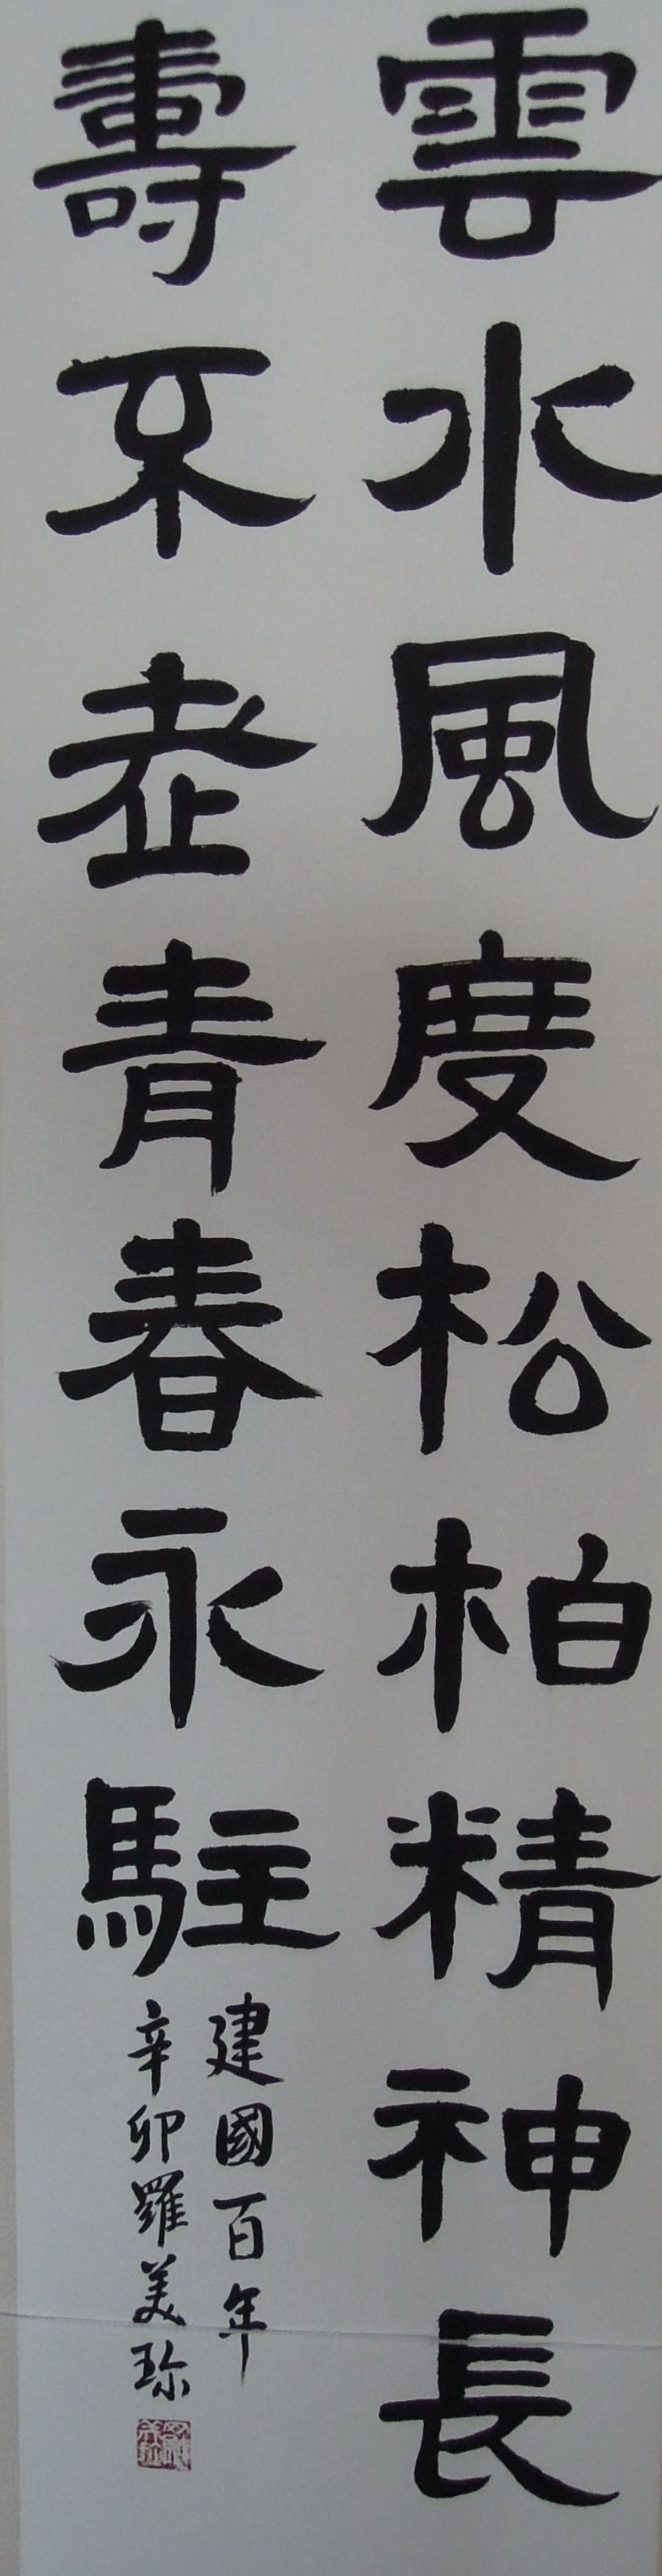 雲水風度松柏精神長
壽不老青春永駐
建國百年
辛卯羅美珎